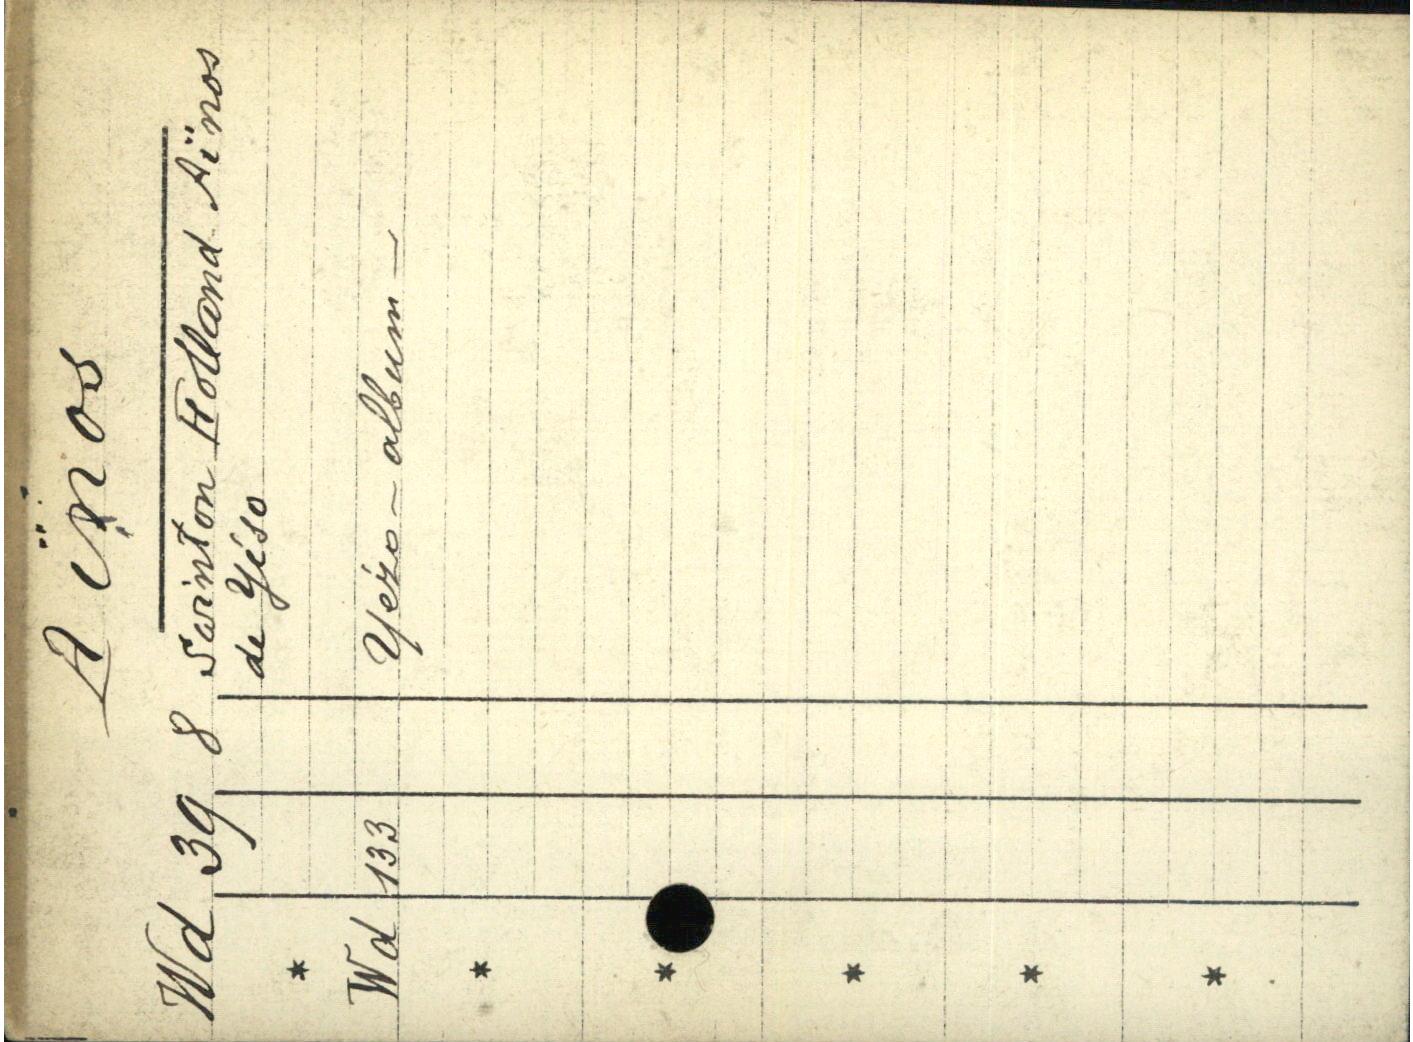 Aïnos
Wd 39 8 Swinton Holland Aïnos
de Yéso
*
Wd 133 Yézo - album -
*
*
*
*
*